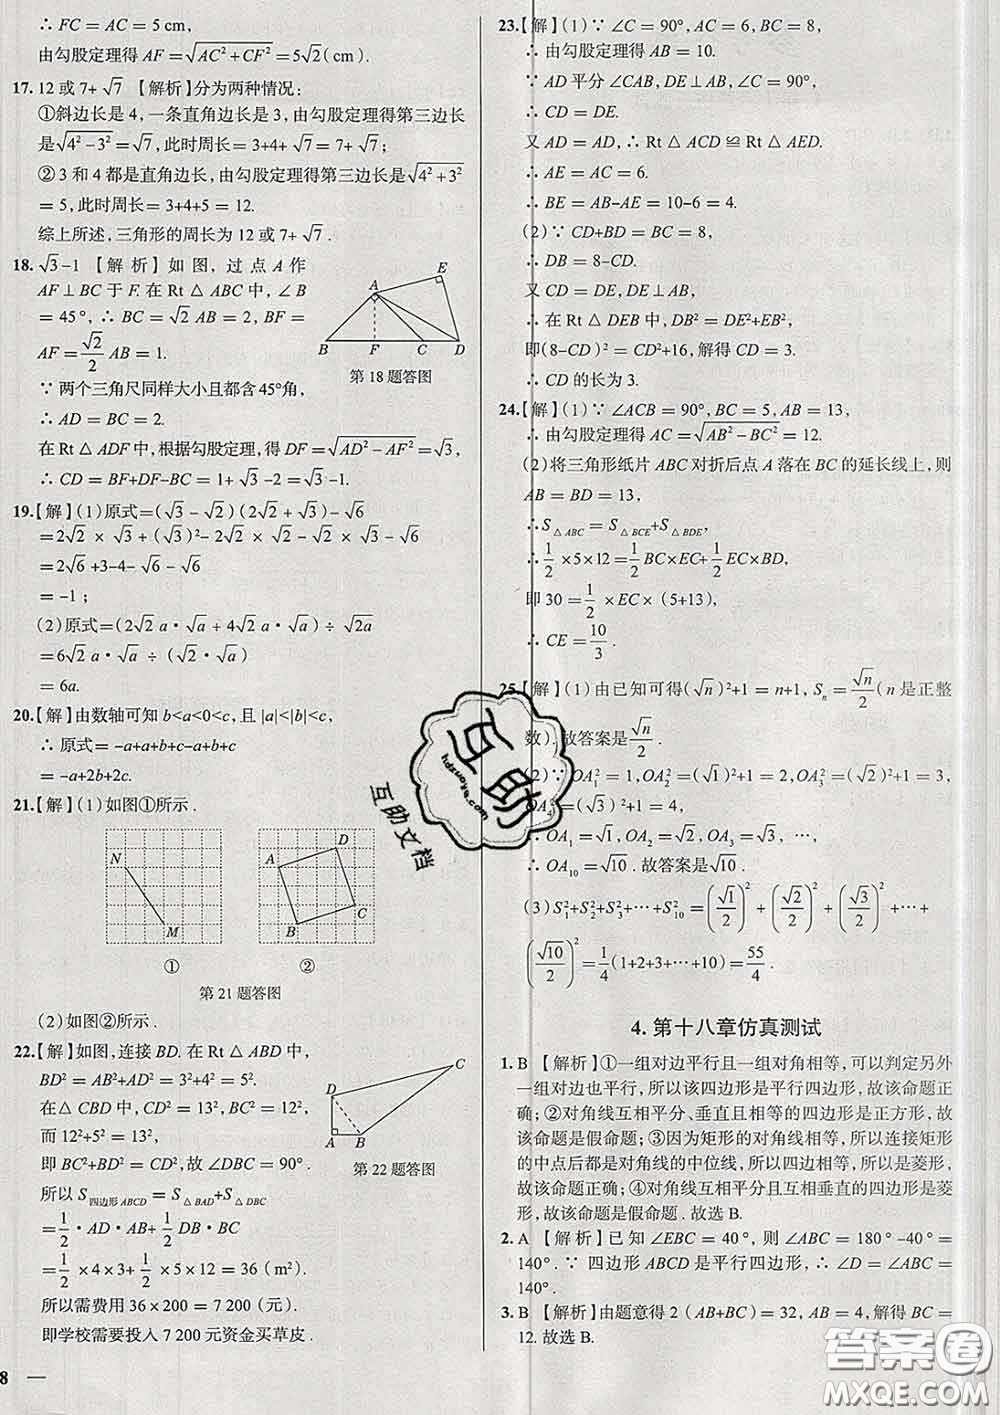 ∴ FC = AC = 5 cm,
由勾股定理得 AF = √(AC²+CF²) = 5√2(cm).
17. 12 或 7+ √7 【解析】分为两种情况:
①斜边长是 4, 一条直角边长是 3, 由勾股定理得第三边长
是√(4²-3²) = √7, 此时周长 = 3+4+ √7 = 7+ √7;
② 3 和 4 都是直角边长, 由勾股定理得第三边长是√(4²+3²)
= 5, 此时周长 = 3+4+5 = 12.
综上所述, 三角形的周长为 12 或 7+ √7 .
18. √3-1 【解析】如图, 过点 A 作
AF⊥BC 于 F. 在 Rt△ABC 中, ∠B
= 45°, ∴ BC = √2 AB = 2, BF =
AF = √2/2 AB = 1.
第 18 题答图
A
B
F
C
D
E
∵ 两个三角尺同样大小且都含 45°角,
∴ AD = BC = 2.
在 Rt△ADF 中, 根据勾股定理, 得 DF = √(AD²-AF²) = √3,
∴ CD = BF+DF-BC = 1+ √3 -2 = √3-1.
19.【解】(1)原式=(√3-√2)(2√2+√3)-√6
= 2√2 × √3 + (√3)²- 2√2 × √2 - √2 × √3 - √6
= 2√6 +3-4- √6 - √6
= -1;
(2)原式=(2√2 a·√a + 4√2 a·√a) ÷ √2a
= 6√2 a·√a ÷ (√2·√a)
= 6a.
20.【解】由数轴可知 b<a<0<c, 且 |a|<|b|<c,
∴ 原式= -a+a+b+c-a+b+c
= -a+2b+2c.
21.【解】(1)如图①所示.
N
M
A
B
C
D
① ②
第 21 题答图
(2)如图②所示.
22.【解】如图, 连接 BD. 在 Rt△ABD 中,
BD² = AB²+AD² = 3²+4² = 5²,
在△CBD 中, CD² = 13², BC² = 12²,
而 12²+5² = 13²,
即 BC²+BD² = CD², 故∠DBC = 90°.
第 22 题答图
A
B
C
D
所以 S四边形ABCD = S△BAD+S△DBC
= 1/2·AD·AB+ 1/2 DB·BC
= 1/2 ×4×3+ 1/2 ×5×12 = 36(m²).
所以需费用 36×200 = 7 200(元).
即学校需要投入 7 200 元资金买草皮.
8
23.【解】(1)∵ ∠C = 90°, AC = 6, BC = 8,
∴ 由勾股定理得 AB = 10.
∵ AD 平分∠CAB, DE⊥AB, ∠C = 90°,
∴ CD = DE.
又 AD = AD, ∴ Rt△ACD ≌ Rt△AED.
∴ AE = AC = 6.
∴ BE = AB-AE = 10-6 = 4.
(2)∵ CD+BD = BC = 8,
∴ DB = 8-CD.
又 CD = DE, DE⊥AB,
∴ 在 Rt△DEB 中, DB² = DE²+EB²,
即(8-CD)² = CD²+16, 解得 CD = 3.
∴ CD 的长为 3.
24.【解】(1)∵ ∠ACB = 90°, BC = 5, AB = 13,
∴ 由勾股定理得 AC = √(AB²-BC²) = 12.
(2)将三角形纸片 ABC 对折后点 A 落在 BC 的延长线上, 则
AB = BD = 13,
∴ S△ABC = S△BCE+S△BDE,
∴ 1/2 ×5×12 = 1/2 BC×EC+ 1/2 EC×BD,
即 30 = 1/2 ×EC×(5+13),
∴ CE = 10/3 .
25.【解】(1)由已知可得(√n)²+1 = n+1, Sn = √n/2 (n 是正整
数). 故答案是 √n/2 .
(2)∵ OA1² = 1, OA2² = (√1)²+1 = 2, OA3² = (√2)²+1 = 3,
OA4² = (√3)²+1 = 4,
∴ OA1 = √1, OA2 = √2, OA3 = √3, …,
∴ OA10 = √10 . 故答案是√10 .
(3)S1²+S2²+S3²+…+S10² = (√1/2)² + (√2/2)² + (√3/2)² +…+
(√10/2)² = 1/4 (1+2+3+…+10) = 55/4 .
4. 第十八章仿真测试
1. B 【解析】①一组对边平行且一组对角相等, 可以判定另外
一组对边也平行, 所以该四边形是平行四边形, 故该命题正
确; ②对角线互相平分、垂直且相等的四边形是正方形, 故
该命题是假命题; ③因为矩形的对角线相等, 所以连接矩形
的中点后都是对角线的中位线, 所以四边相等, 所以是菱形,
故该命题正确; ④对角线相等且互相垂直的四边形是菱
形, 故该命题是假命题. 故选 B.
2. A 【解析】已知∠EBC = 40°, 则∠ABC = 180°-40° =
140°. ∵ 四边形 ABCD 是平行四边形, ∴ ∠D = ∠ABC =
140°.
3. B 【解析】由题意得 2(AB+BC) = 32, AB = 4, 解得 BC =
12. 故选 B.
互助
hdzuoye.com
互助文档
答案圈
MXQE.COM